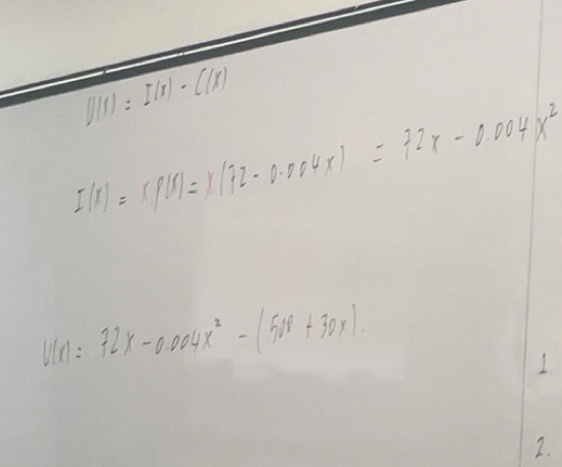 U(x) = I(x) - C(x)
I(x) = x p(x) = x(72 - 0.004x) = 72x - 0.004x²
U(x) = 72x - 0.004x² - (500 + 30x).
1.
2.